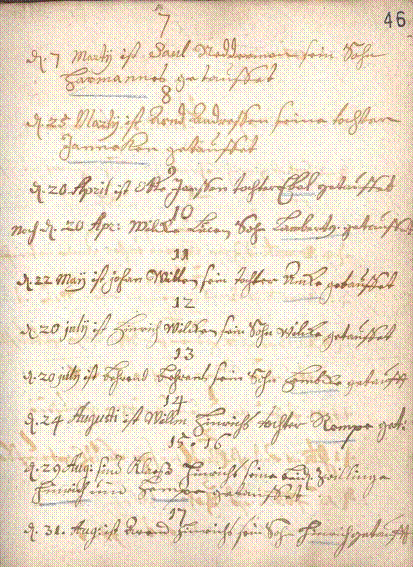 46
7
d. 7 Martij ist Paul Reddermann sein Sohn
Harmannes getauffet
8
d. 25 Martij ist Arnd seine tochter
Janneken getauffet
9
d. 20 April ist Otto Janssen tochter getauffet
10
noch d. 20 Apr: Wilcke Sohn Lambertg getauffet
11
d. 22 Maij ist johan Willen sein tochter getauffet
12
d. 20 julij ist Hinrich Wilcken sein Sohn Wilcke getauffet
13
d. 20 julij ist Behrend Behrens sein Sohn getauff
14
d. 24 Augusti ist Willm Hinrichs tochter get:
15 . 16
d. 29 Aug: sind Klaess Hinrichs seine beide Zwillinge
Hinrich und getauffet
17
d. 31. Aug: ist Arend Hinrichs sein Sohn Hinrich getauff